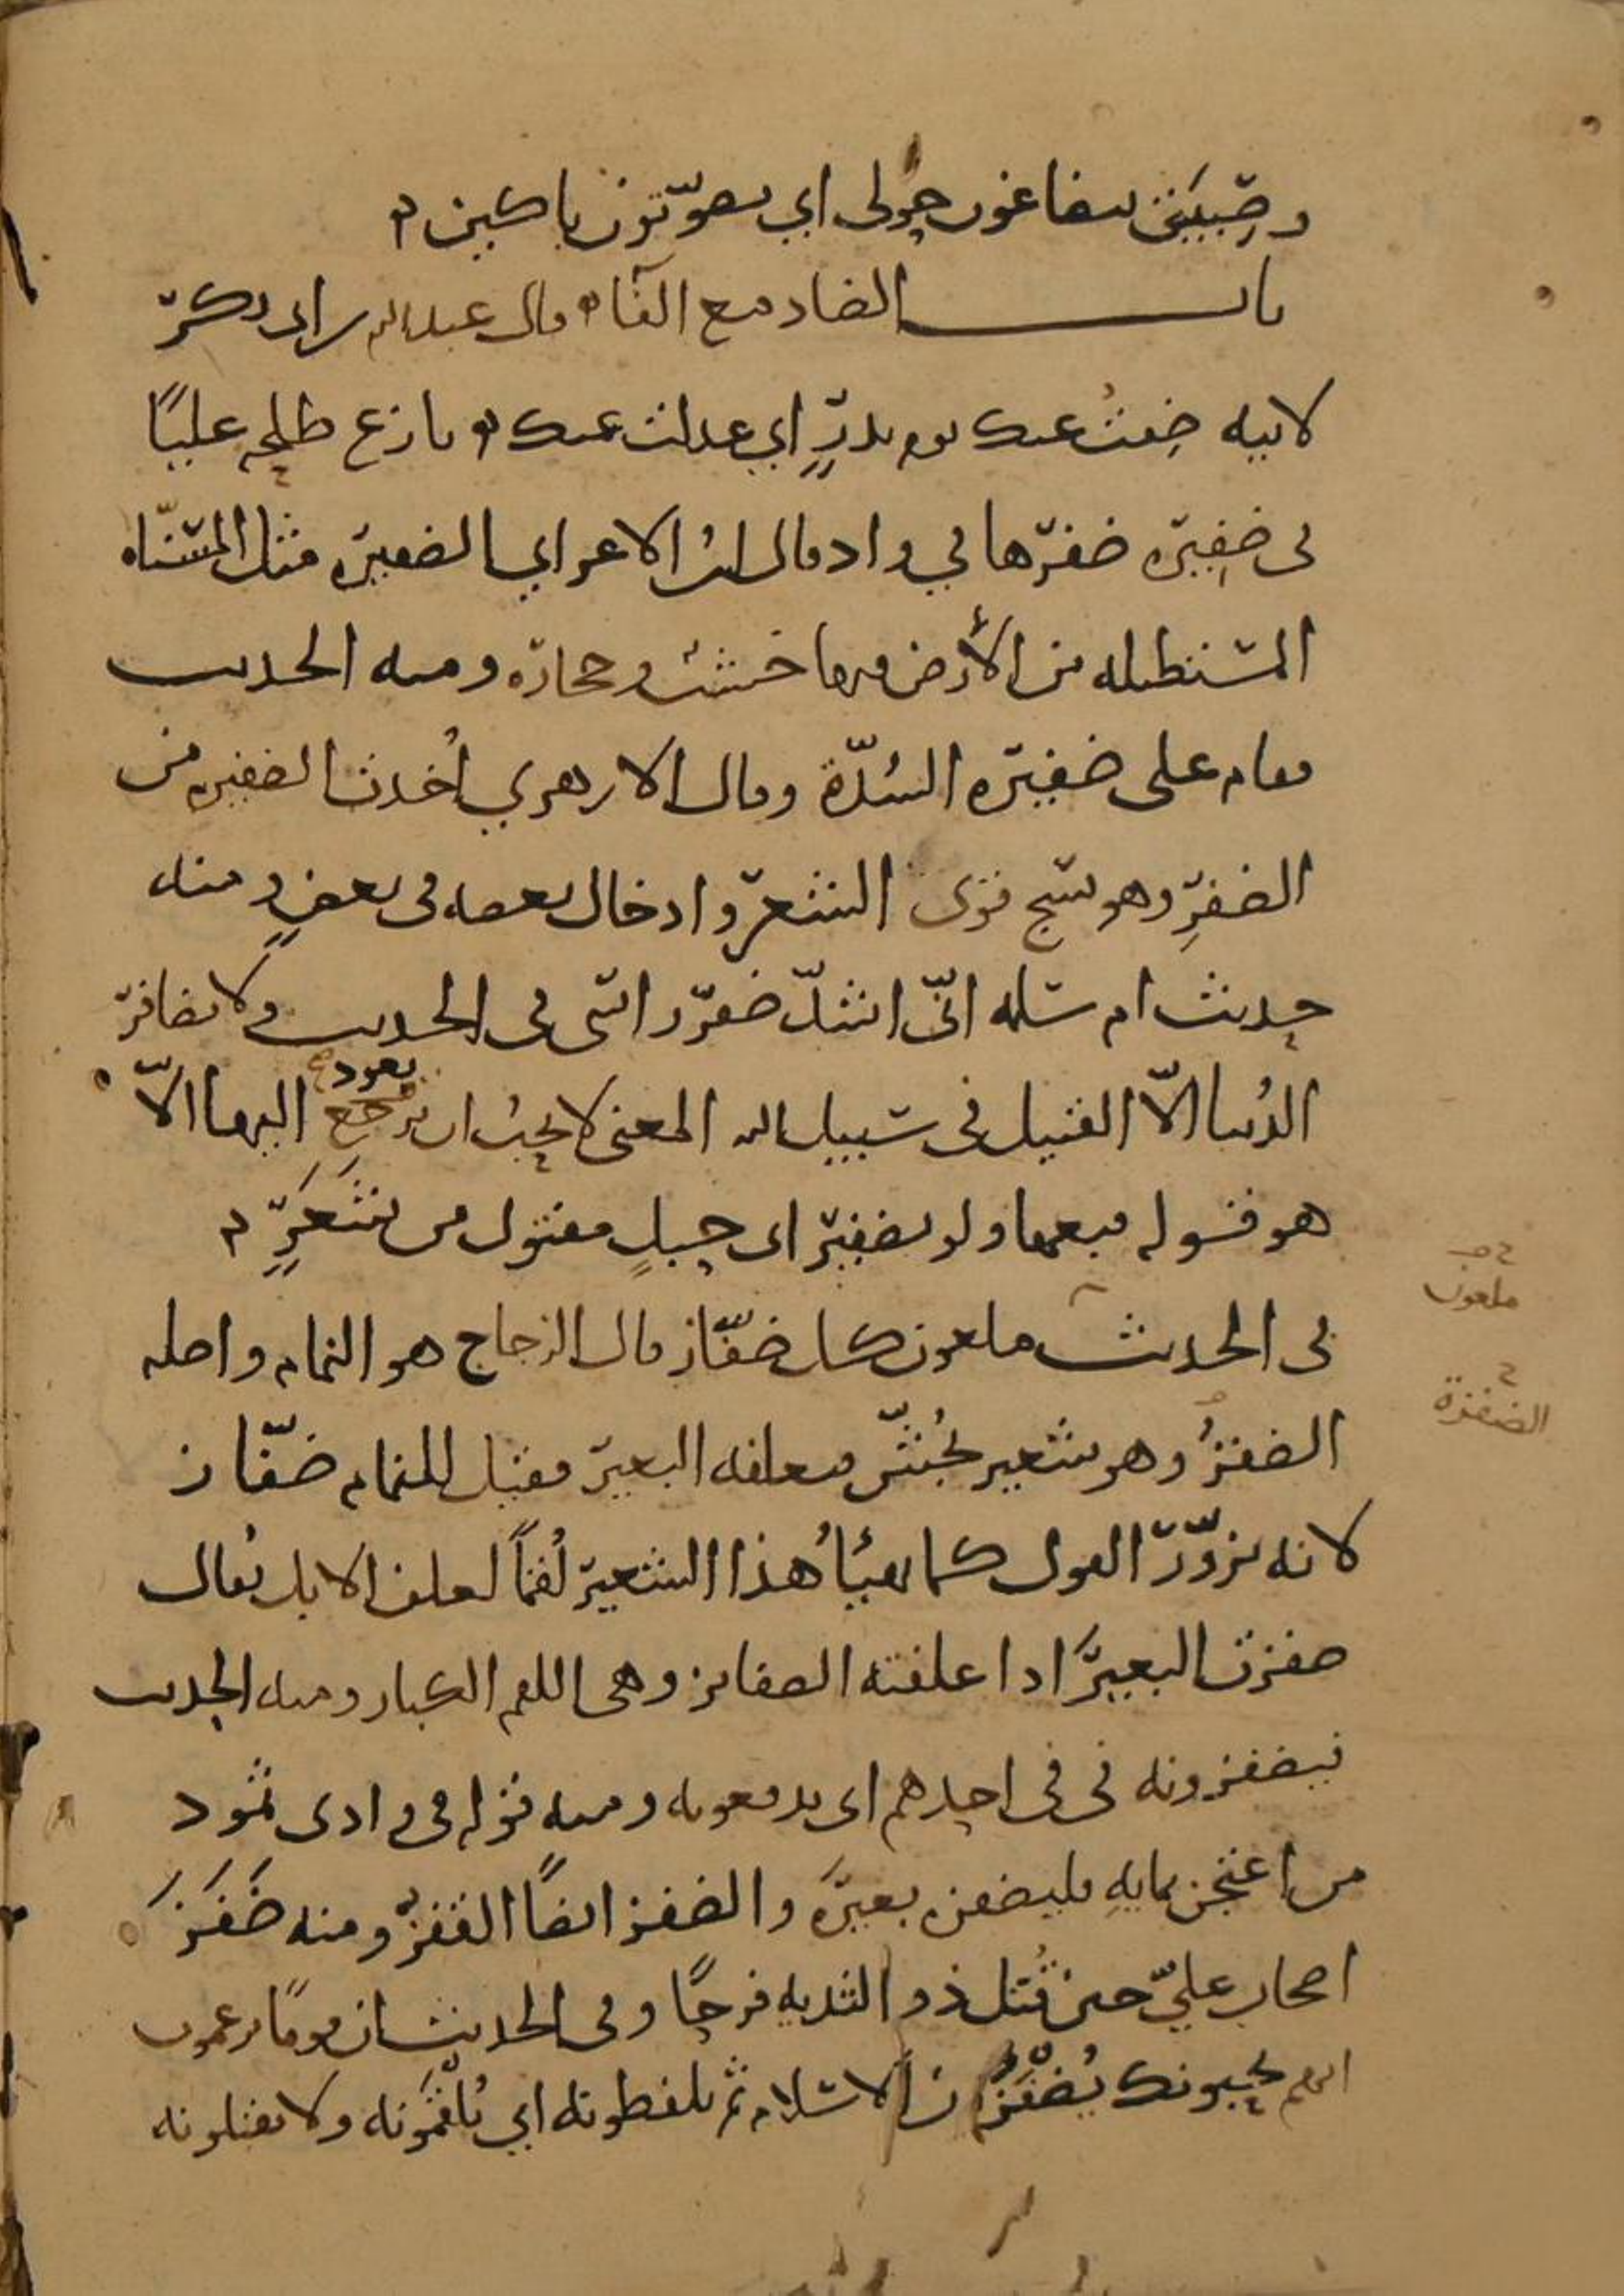 وصبيتي يتضاغون حولي اي يصوّتون باكين
باب الضاد مع الفاء قال عبدالله بن ابي بكر
لابيه ضِفتُ عنك يوم بدرٍ اي عدلت عنك نازع طلحه عليًا
في ضفِيره ضفرها في واد قال ابن الاعرابي الضفيره مثل المسنّاه
المستطيله من الأرض فيها خشب وحجاره ومنه الحديث
فقام على ضفيره السُدّة وقال الازهري اُخذت الضفيره من
الضفرِ وهو نسج قوى الشعر وادخال بعضه في بعضٍ ومنه
حديث ام سلمه انّي اشدّ ضفر راسي في الحديث ولا يضافر
الدُنيا الّا القتيل في سبيل الله المعنى لا يحبُ ان يرجع اليها الّا
يعود
هو قوله فبعها ولو بضفير اي حبلٍ مفتول من شَعَرٍ
في الحديث ملعون كل ضفّاز قال الزجاج هو النمام واصله
ملعون
الضفزُ وهو شعير يُجَشّ فيعلفه البعير فقيل للنمام ضفّاز
الضفزة
لانه يزوّر القول كما يهيّأُ هذا الشعير لُقمًا لعلف الابل يقال
ضفزت البعيرَ اذا علفته الضفايز وهي اللقم الكبار ومنه الحديث
فيضفزونه في في احدهم اي يدفعونه ومنه قوله في وادي ثمود
من اعتجن بمايهِ فليضفزه بعيرَه والضفز ايضًا القفزُ ومنه ضَفَزَ
اصحاب عليّ حين قُتل ذو الثديه فرحًا وفي الحديث ان قومًا يزعمون
انهم يحبونك يُضفّزُون الاسلام ثم يلفظونه اي يُلقَّمونه ولا يقبلونه